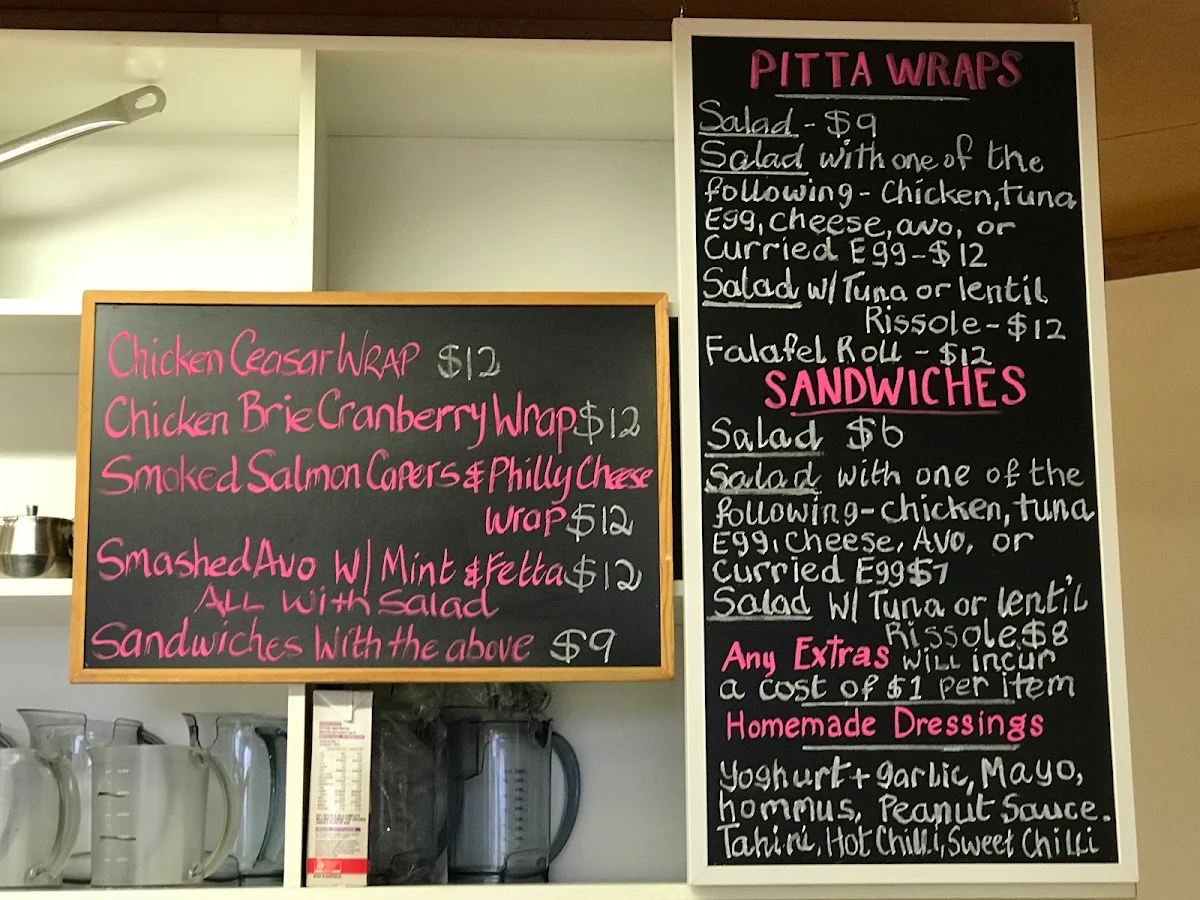 Chicken Ceasar WRAP $12
Chicken Brie Cranberry Wrap $12
Smoked Salmon Capers & Philly Cheese
Wrap $12
Smashed Avo W/ Mint & Fetta $12
ALL With Salad
Sandwiches With the above $9
PITTA WRAPS
Salad - $9
Salad with one of the
following - Chicken, tuna
Egg, Cheese, avo, or
Curried Egg - $12
Salad w/ Tuna or lentil
Rissole - $12
Falafel Roll - $12
SANDWICHES
Salad $6
Salad with one of the
following - chicken, tuna
Egg, Cheese, Avo, or
Curried Egg $7
Salad W/ Tuna or lentil
Rissole $8
Any Extras WiLL incur
a cost of $1 per item
Homemade Dressings
Yoghurt + garlic, Mayo,
hommus, Peanut Sauce.
Tahini, Hot Chilli, Sweet Chilli